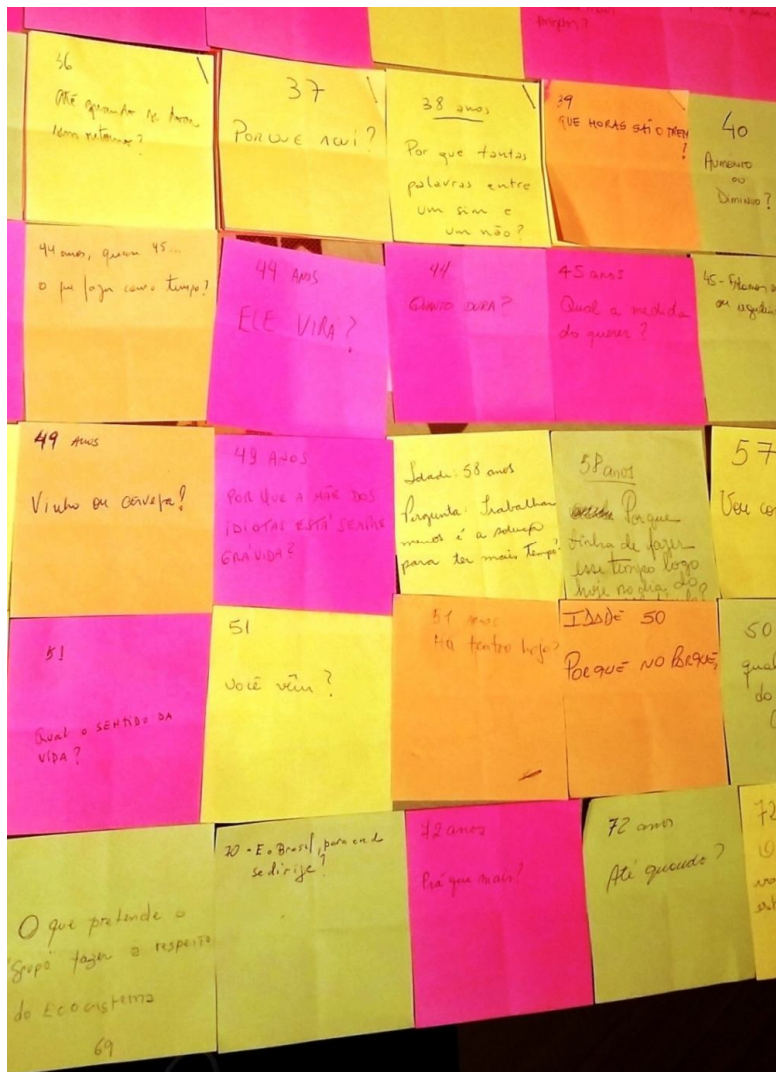 36
Até quando se
sem retorno?
37
PORQUE AQUI?
38 anos
Por que tantas
palavras entre
um sim e
um não?
39
QUE HORAS SAI O TREM
?
40
AUMENTO
OU
DIMINUO?
44 anos, quase 45...
o que fazer com o tempo?
44 ANOS
ELE VIRÁ?
44
QUANTO DURA?
45 anos
Qual a medida
do querer?
45 - Estamos
ou
49 ANOS
Vinho ou cerveja?
49 ANOS
POR QUE A MÃE DOS
IDIOTAS ESTÁ SEMPRE
GRÁVIDA?
Idade: 58 anos
Pergunta: Trabalhar
menos é a solução
para ter mais tempo?
58 anos
Porque
tinha de fazer
esse tempo logo
hoje no dia do
57
Vou
51
Qual o SENTIDO DA
VIDA?
51
você vêm?
51 anos
Há teatro hoje?
IDADE 50
PORQUÊ NO PARQUE,
50
qual
do
O que pretende o
Grupo fazer a respeito
do Ecocistema
69
70 - E o Brasil, para onde
se dirije?
72 anos
Prá que mais?
72 anos
Até quando?
72
O